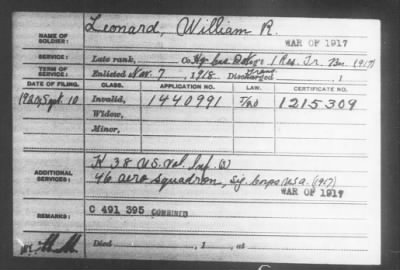 NAME OF SOLDIER: Leonard, William R.
WAR OF 1917
SERVICE: Late rank, Co. Hq. Cas. Det. 1 Res. Tr. Bn. (1917)
TERM OF SERVICE: Enlisted Nov. 7, 1918 Discharged , 1
DATE OF FILING. CLASS. APPLICATION NO. LAW. CERTIFICATE NO.
Sept. 10 Invalid, 1440991 1215309
Widow,
Minor,
ADDITIONAL SERVICES: K 38 U.S. Vol Inf.
46 Aero Squadron, Sig. Corps U.S.A. (1917)
WAR OF 1917
REMARKS: C 491 395 COMBINED
Died , 1 , at